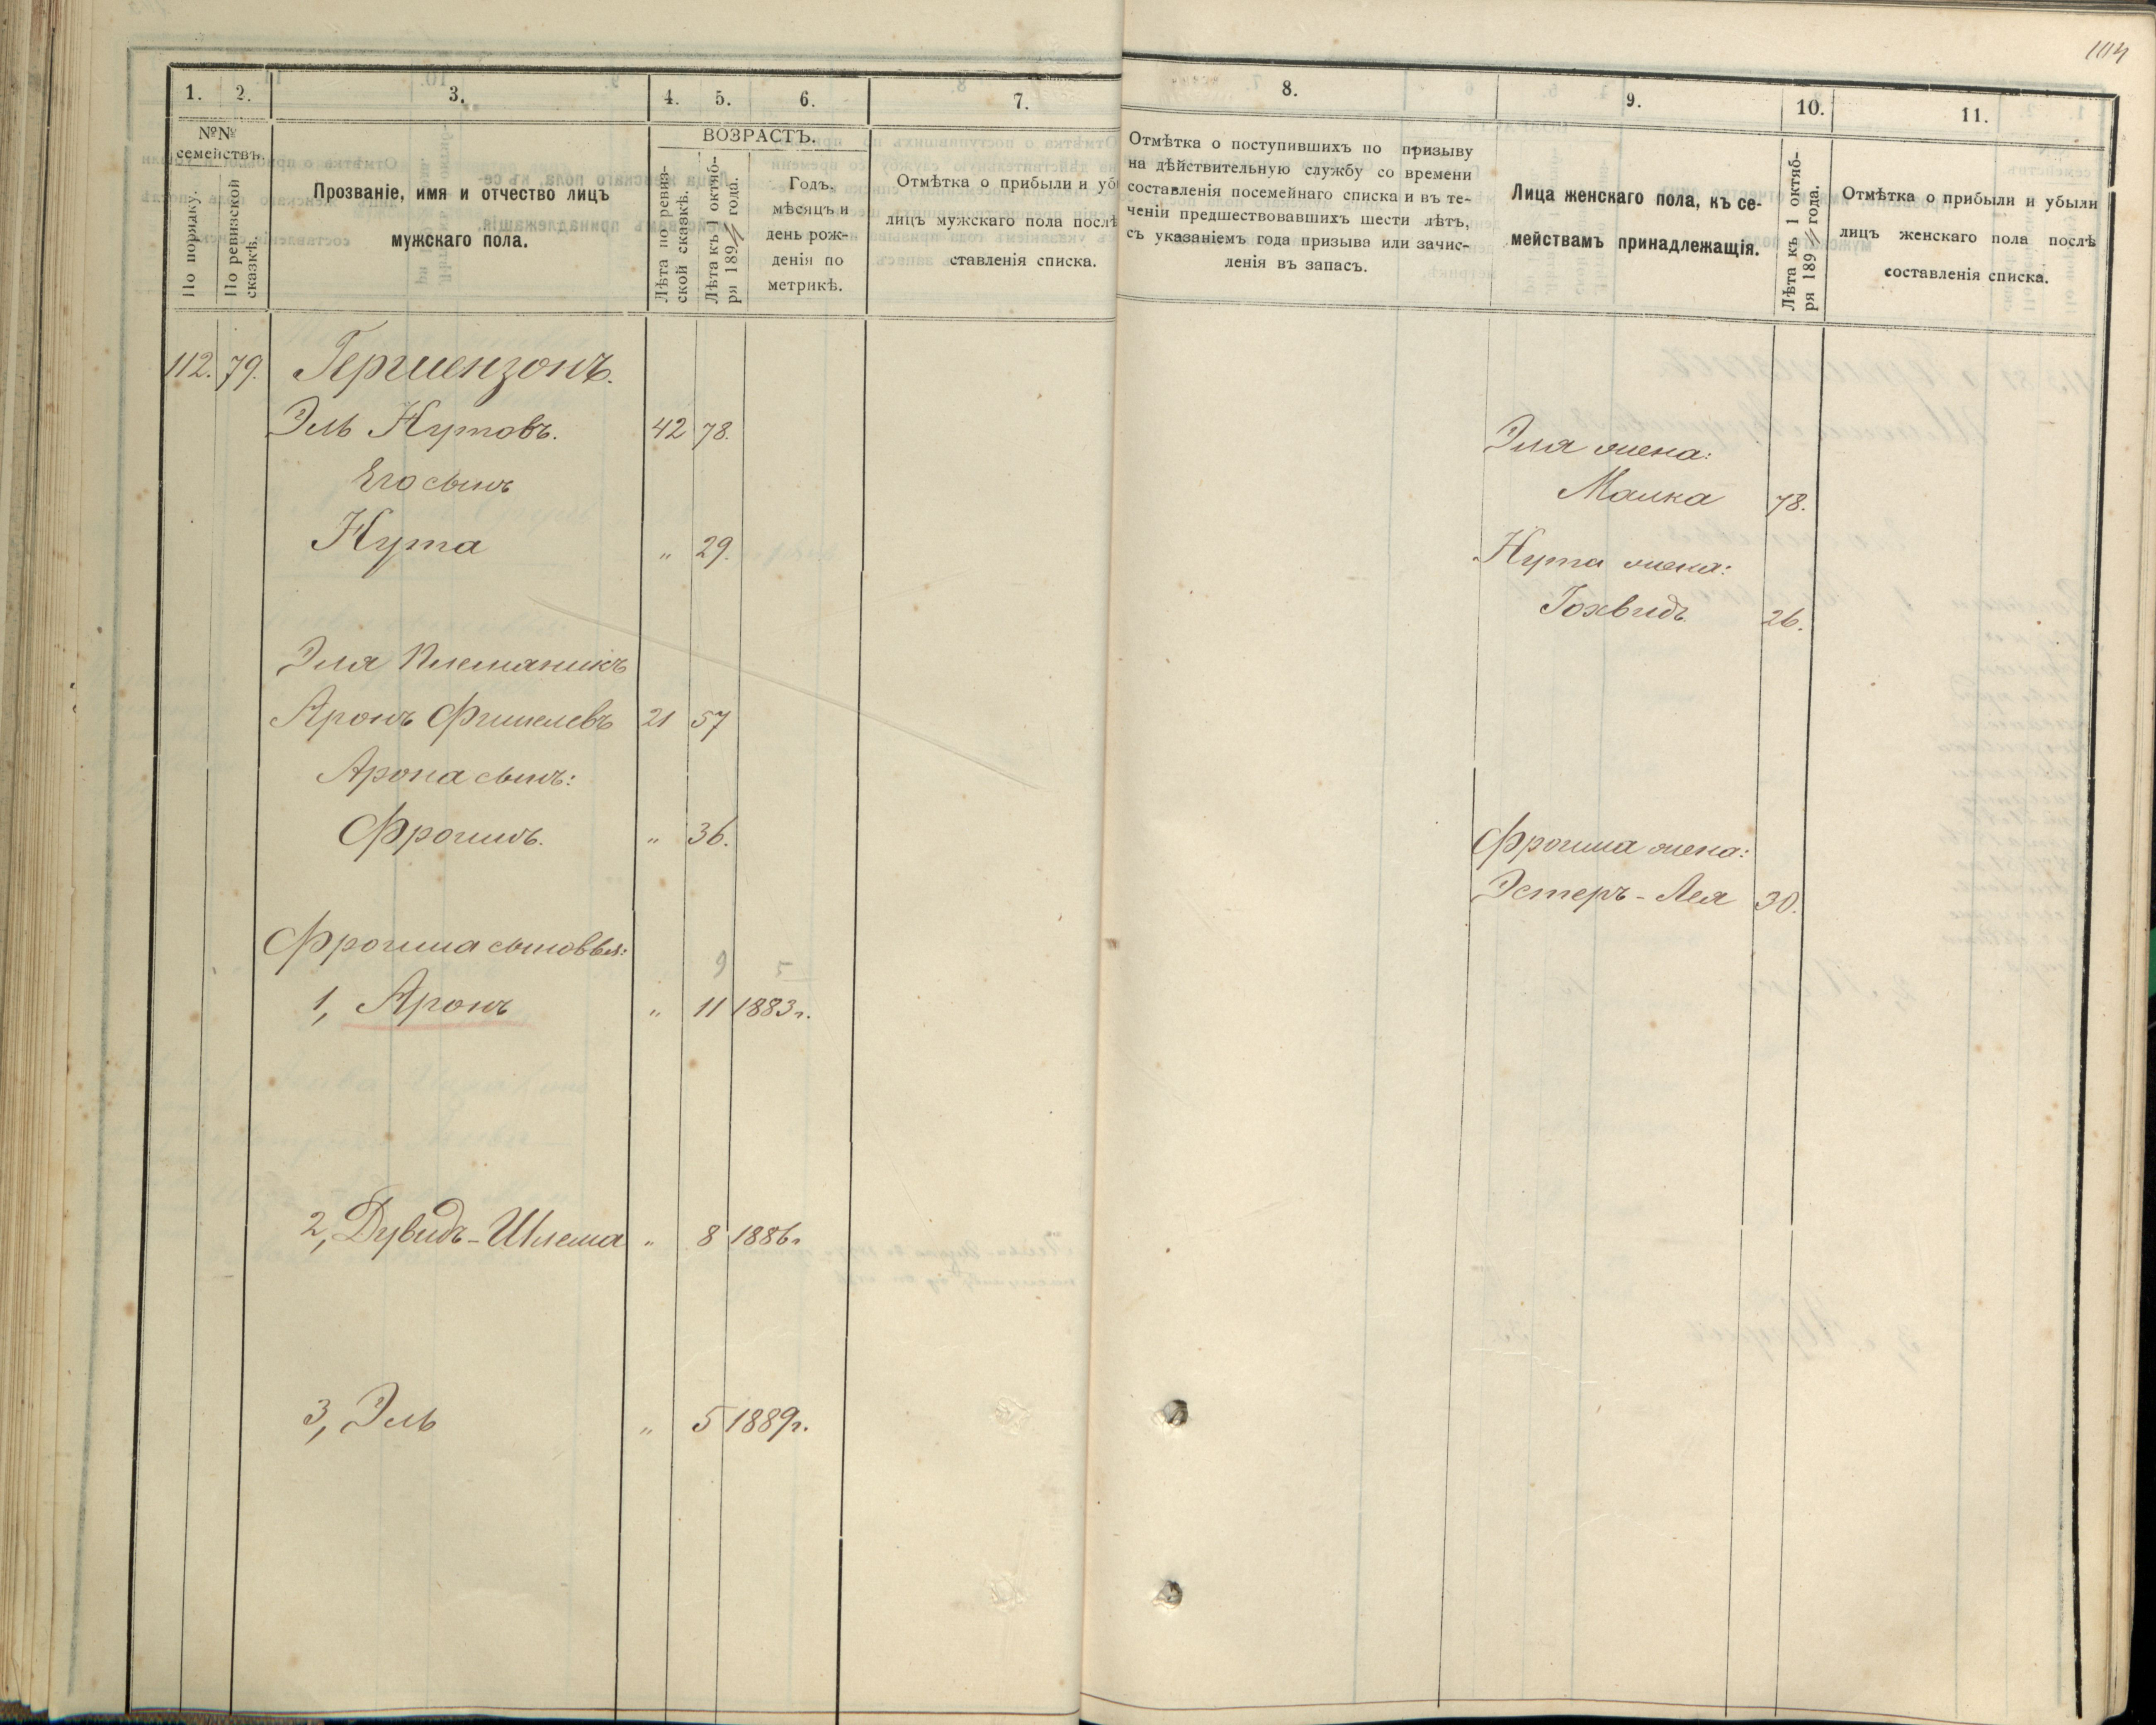 1. 2. 3. 4. 5. 6. 7.
№№ семействъ.
По порядку.
По ревизской сказкѣ.
Прозваніе, имя и отчество лицъ
мужскаго пола.
ВОЗРАСТЪ.
Лѣта по ревиз-
ской сказкѣ.
Лѣта къ 1 октяб-
ря 189 года.
Годъ,
мѣсяцъ и
день рож-
денія по
метрикѣ.
Отмѣтка о прибыли и уб
лицъ мужскаго пола послѣ
ставленія списка.
112. 79. Гершензонъ.
Эль Нутовъ. 42 78.
Его сынъ
Нута " 29.
Эля племяникъ
Аронъ Фишелевъ 21 57
Арона сынъ:
Фроимъ. " 36.
Фроима сыновья:
9 5
1, Аронъ " 11 1883г.
2, Дувидъ-Шлема " 8 1886г
3, Эль " 5 1889г.
104
8. 9. 10. 11.
Отмѣтка о поступившихъ по призыву
на дѣйствительную службу со времени
составленія посемейнаго списка и въ те-
ченіи предшествовавшихъ шести лѣтъ,
съ указаніемъ года призыва или зачис-
ленія въ запасъ.
Лица женскаго пола, къ се-
мействамъ принадлежащія.
Лѣта къ 1 октяб-
ря 189 года.
Отмѣтка о прибыли и убыли
лицъ женскаго пола послѣ
составленія списка.
Эля жена:
Малка 78.
Нута жена:
Гохвидъ 26.
Фроима жена:
Эстеръ-Лея 30.